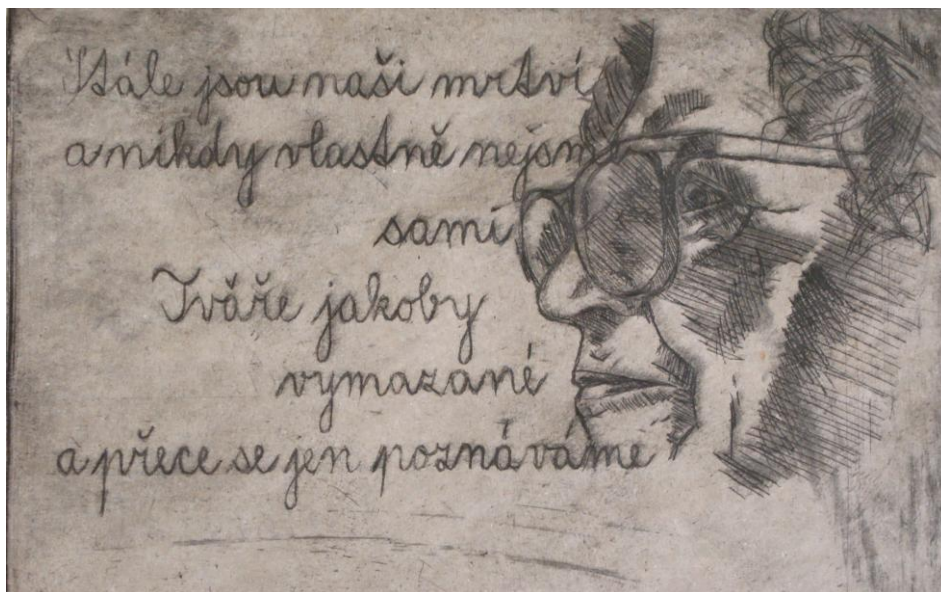 Stále jsou naši mrtví
a nikdy vlastně nejsme
sami
Tváře jakoby
vymazané
a přece se jen poznáváme